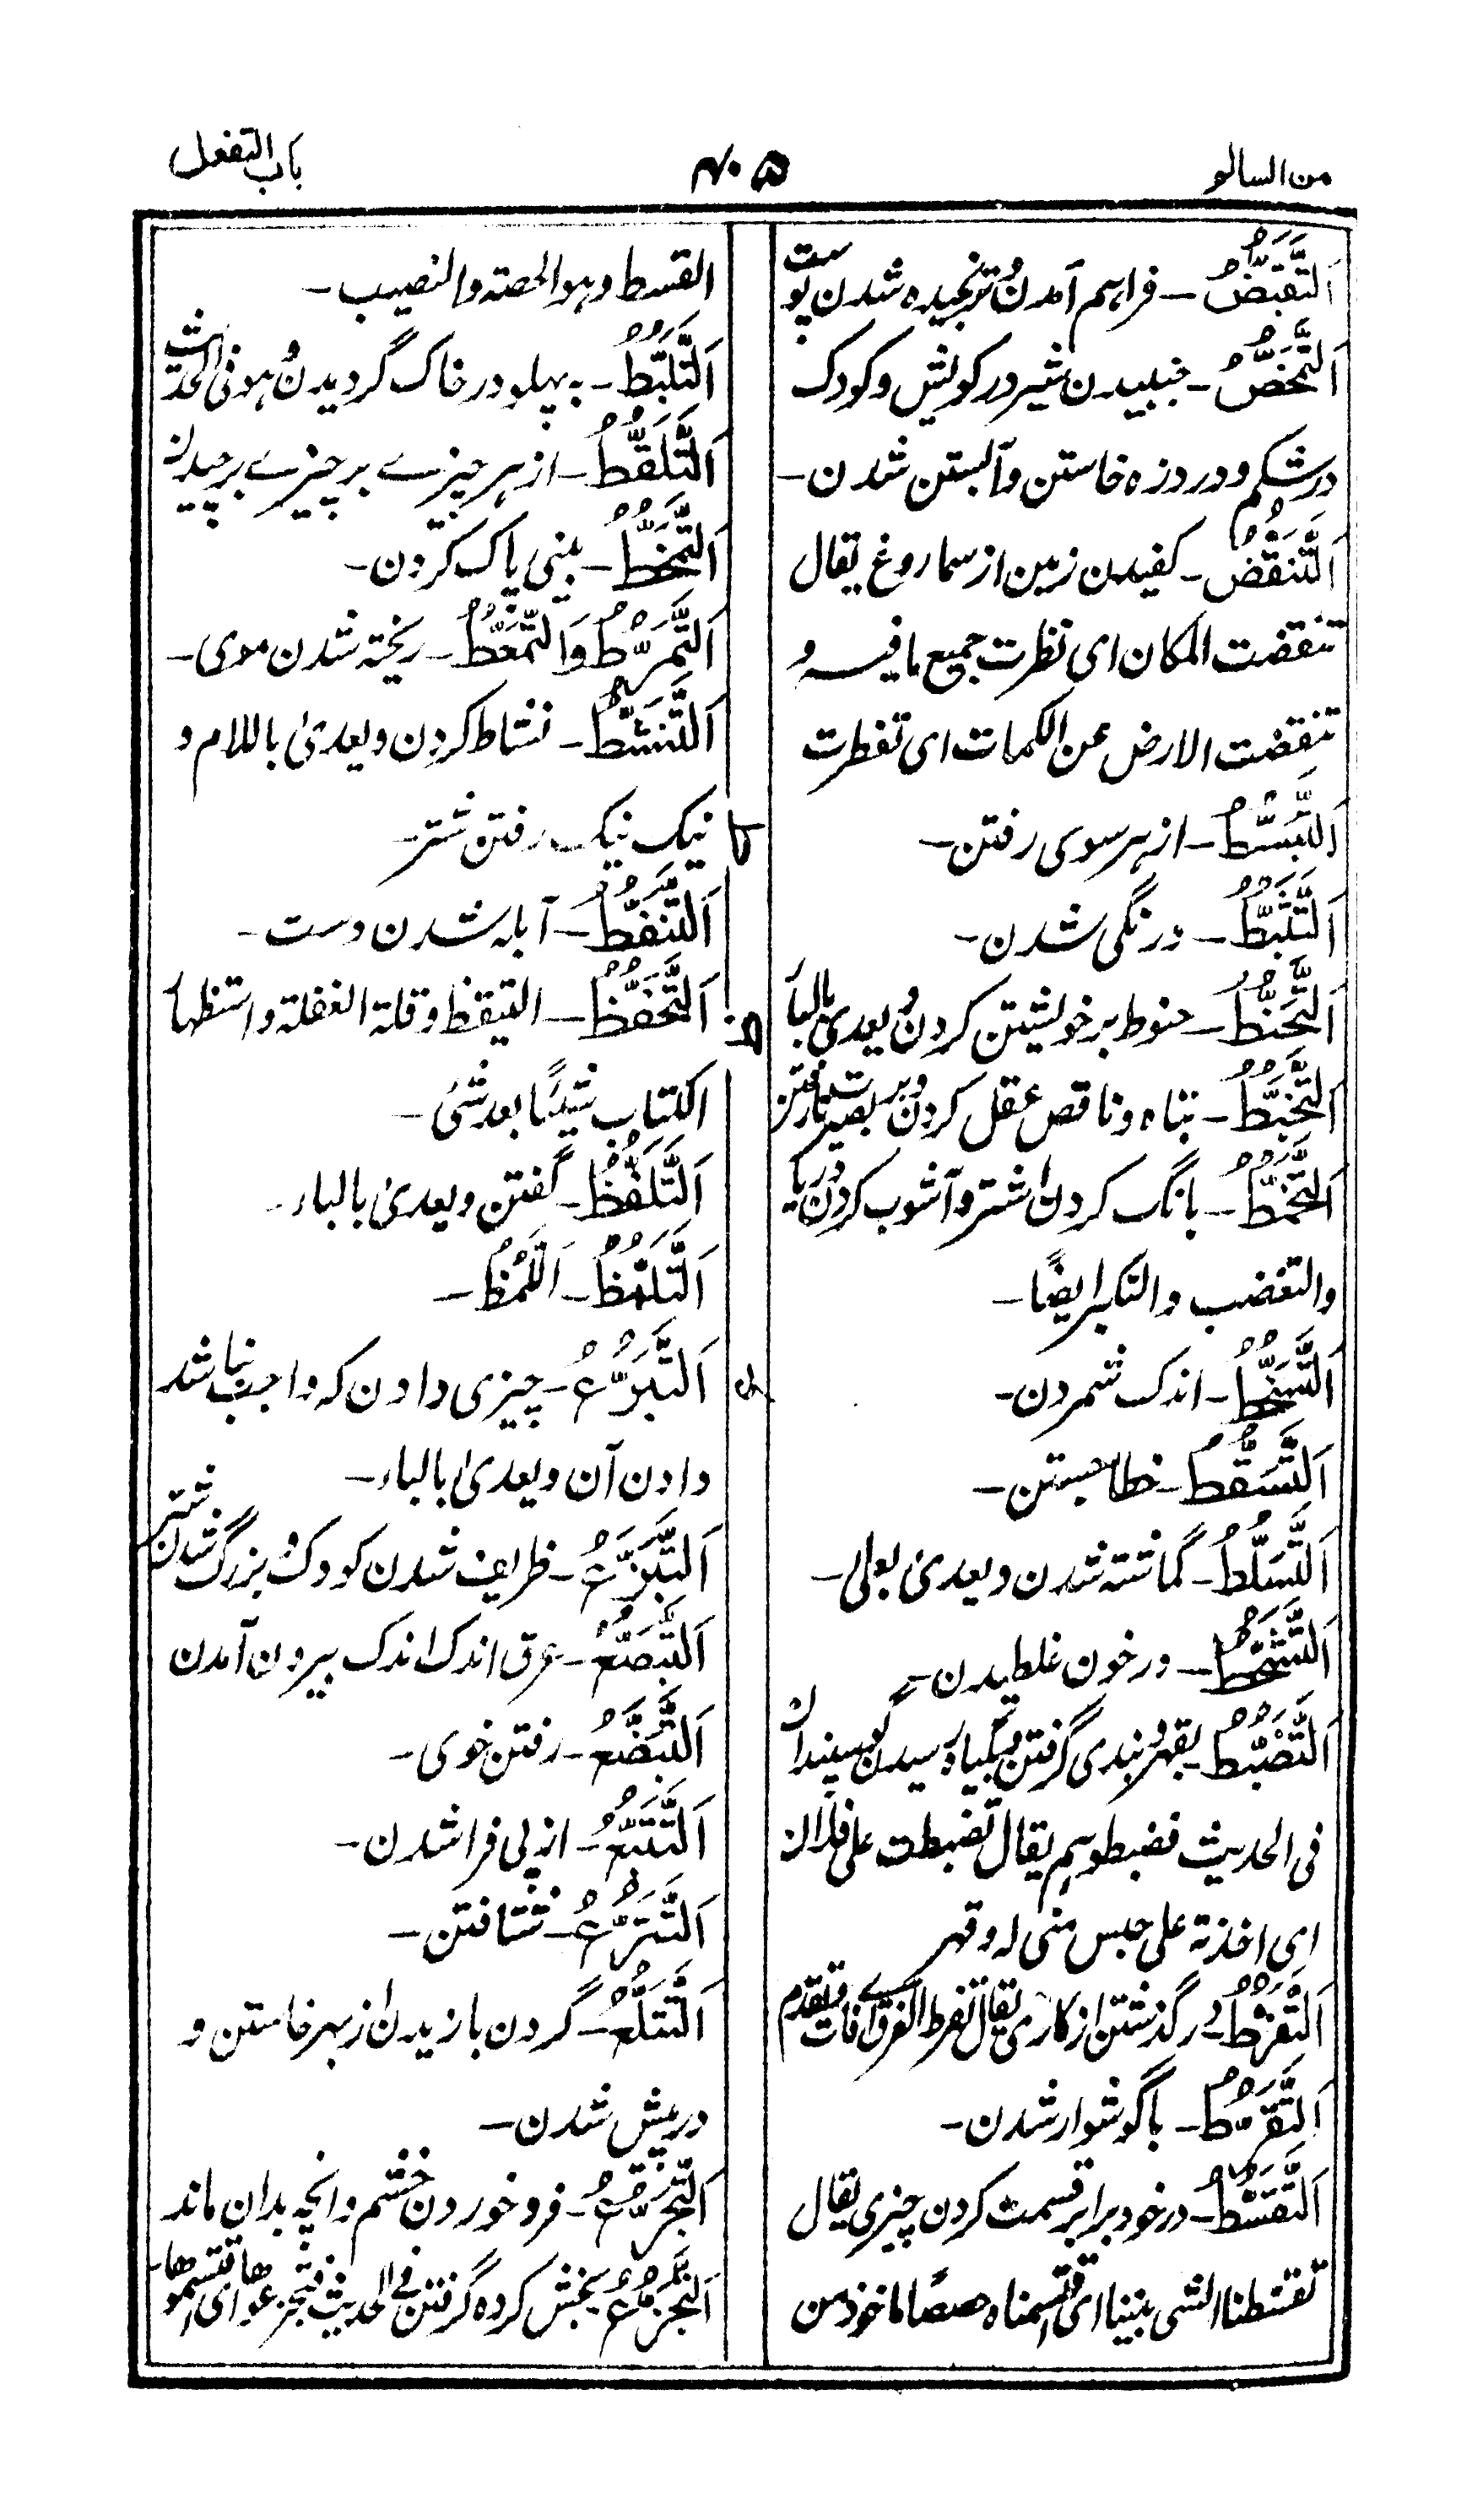 من السالم
۴۰۵
باب التفعل
اَلتَّقَبُّضُ ـ فراہم آمدن و ترنجیدہ شدن پوست
اَلتَّمَخُّضُ ـ جنبیدن شیر در کوئش و کودک
در شکم و درد زہ خاستن و آبستن شدن ـ
اَلتَّنَقُّضُ ـ کفیدن زمین از سماروغ یقال
تنقضت المکان ای نظرت جمیع ما فیہ و
تنقضت الارض عن الکمات ای تفطرت
اَلتَّبَسُّطُ ـ از ہر سوی رفتن ـ
اَلتَّثَبُّطُ ـ درنگی شدن ـ
اَلتَّحَنُّطُ ـ حنوط بر خویشتن کردن و یعدیٰ بالباء
اَلتَّخَبُّطُ ـ تباہ و ناقص عقل کردن و بر بے بصیرت رفتن
اَلتَّخَمُّطُ ـ بانگ کردن اشتر و آشوب کردن دریا
والتغضب والتکبر ایضًا ـ
اَلتَّسَخُّطُ ـ اندک شمردن ـ
اَلتَّسَقُّطُ ـ خطا جستن ـ
اَلتَّسَلُّطُ ـ گماشتہ شدن و یعدیٰ بعلی ـ
اَلتَّشَحُّطُ ـ در خون غلطیدن ـ
اَلتَّضَبُّطُ ـ بقہر و بندی گرفتن و بگیاہ رسیدن گوسپندان
فی الحدیث فضبطوہم یقال تضبطت علی فلان
ای اخذتہ علی حبس منی لہ و قہر
اَلتَّفَرُّطُ ـ در گذشتن از کاری یقال تفرط الفرق ای فات و تقدم
اَلتَّقَرُّطُ ـ باگوشوار شدن ـ
اَلتَّقَسُّطُ ـ در خود برابر قسمت کردن چیزی یقال
تقسطنا الشی بیننا ای اقتسمناہ حصصًا ماخوذ من
القسط و ہو الحصتہ والنصیب ـ
اَلتَّلَبُّطُ ـ بہ پہلو در خاک گردیدن و ہو فی الحدیث
اَلتَّلَقُّطُ ـ از ہر چیزے بر چیزے برچیدن
اَلتَّمَخُّطُ ـ بینی پاک کردن ـ
اَلتَّمَرُّطُ وَالتَّمَعُّطُ ـ ریختہ شدن موی ـ
اَلتَّنَشُّطُ ـ نشاط کردن و یعدیٰ باللام و
نیک نیک رفتن شتر ـ
اَلتَّنَفُّطُ ـ آبلہ شدن دست ـ
ظ
اَلتَّحَفُّظُ ـ التیقظ و قلة الغفلة و استظہار
الکتاب شیئًا بعد شیٔ ـ
اَلتَّلَفُّظُ ـ گفتن و یعدیٰ بالباء ـ
اَلتَّلَمُّظُ ـ اَللَّمْظُ ـ
ع
اَلتَّبَرُّعُ ـ چیزی دادن کہ واجب نباشد
دادن آن و یعدیٰ بالباء ـ
اَلتَّبَزُّعُ ـ ظریف شدن کودک و بزرگ شدن شتر
اَلتَّبَصُّعُ ـ عرق اندک اندک بیرون آمدن
اَلتَّبَضُّعُ ـ رفتن خوی ـ
اَلتَّتَبُّعُ ـ از پی فرا شدن ـ
اَلتَّتَرُّعُ ـ شتافتن ـ
اَلتَّتَلُّعُ ـ گردن بازیدن از بہر خاستن و
در پیش شدن ـ
اَلتَّجَرُّعُ ـ فرو خوردن خشم و انچہ بدان ماند
اَلتَّجَزُّعُ ـ بخش کردہ گرفتن فی الحدیث فتجزعوھا ای اقتسموھا ـ